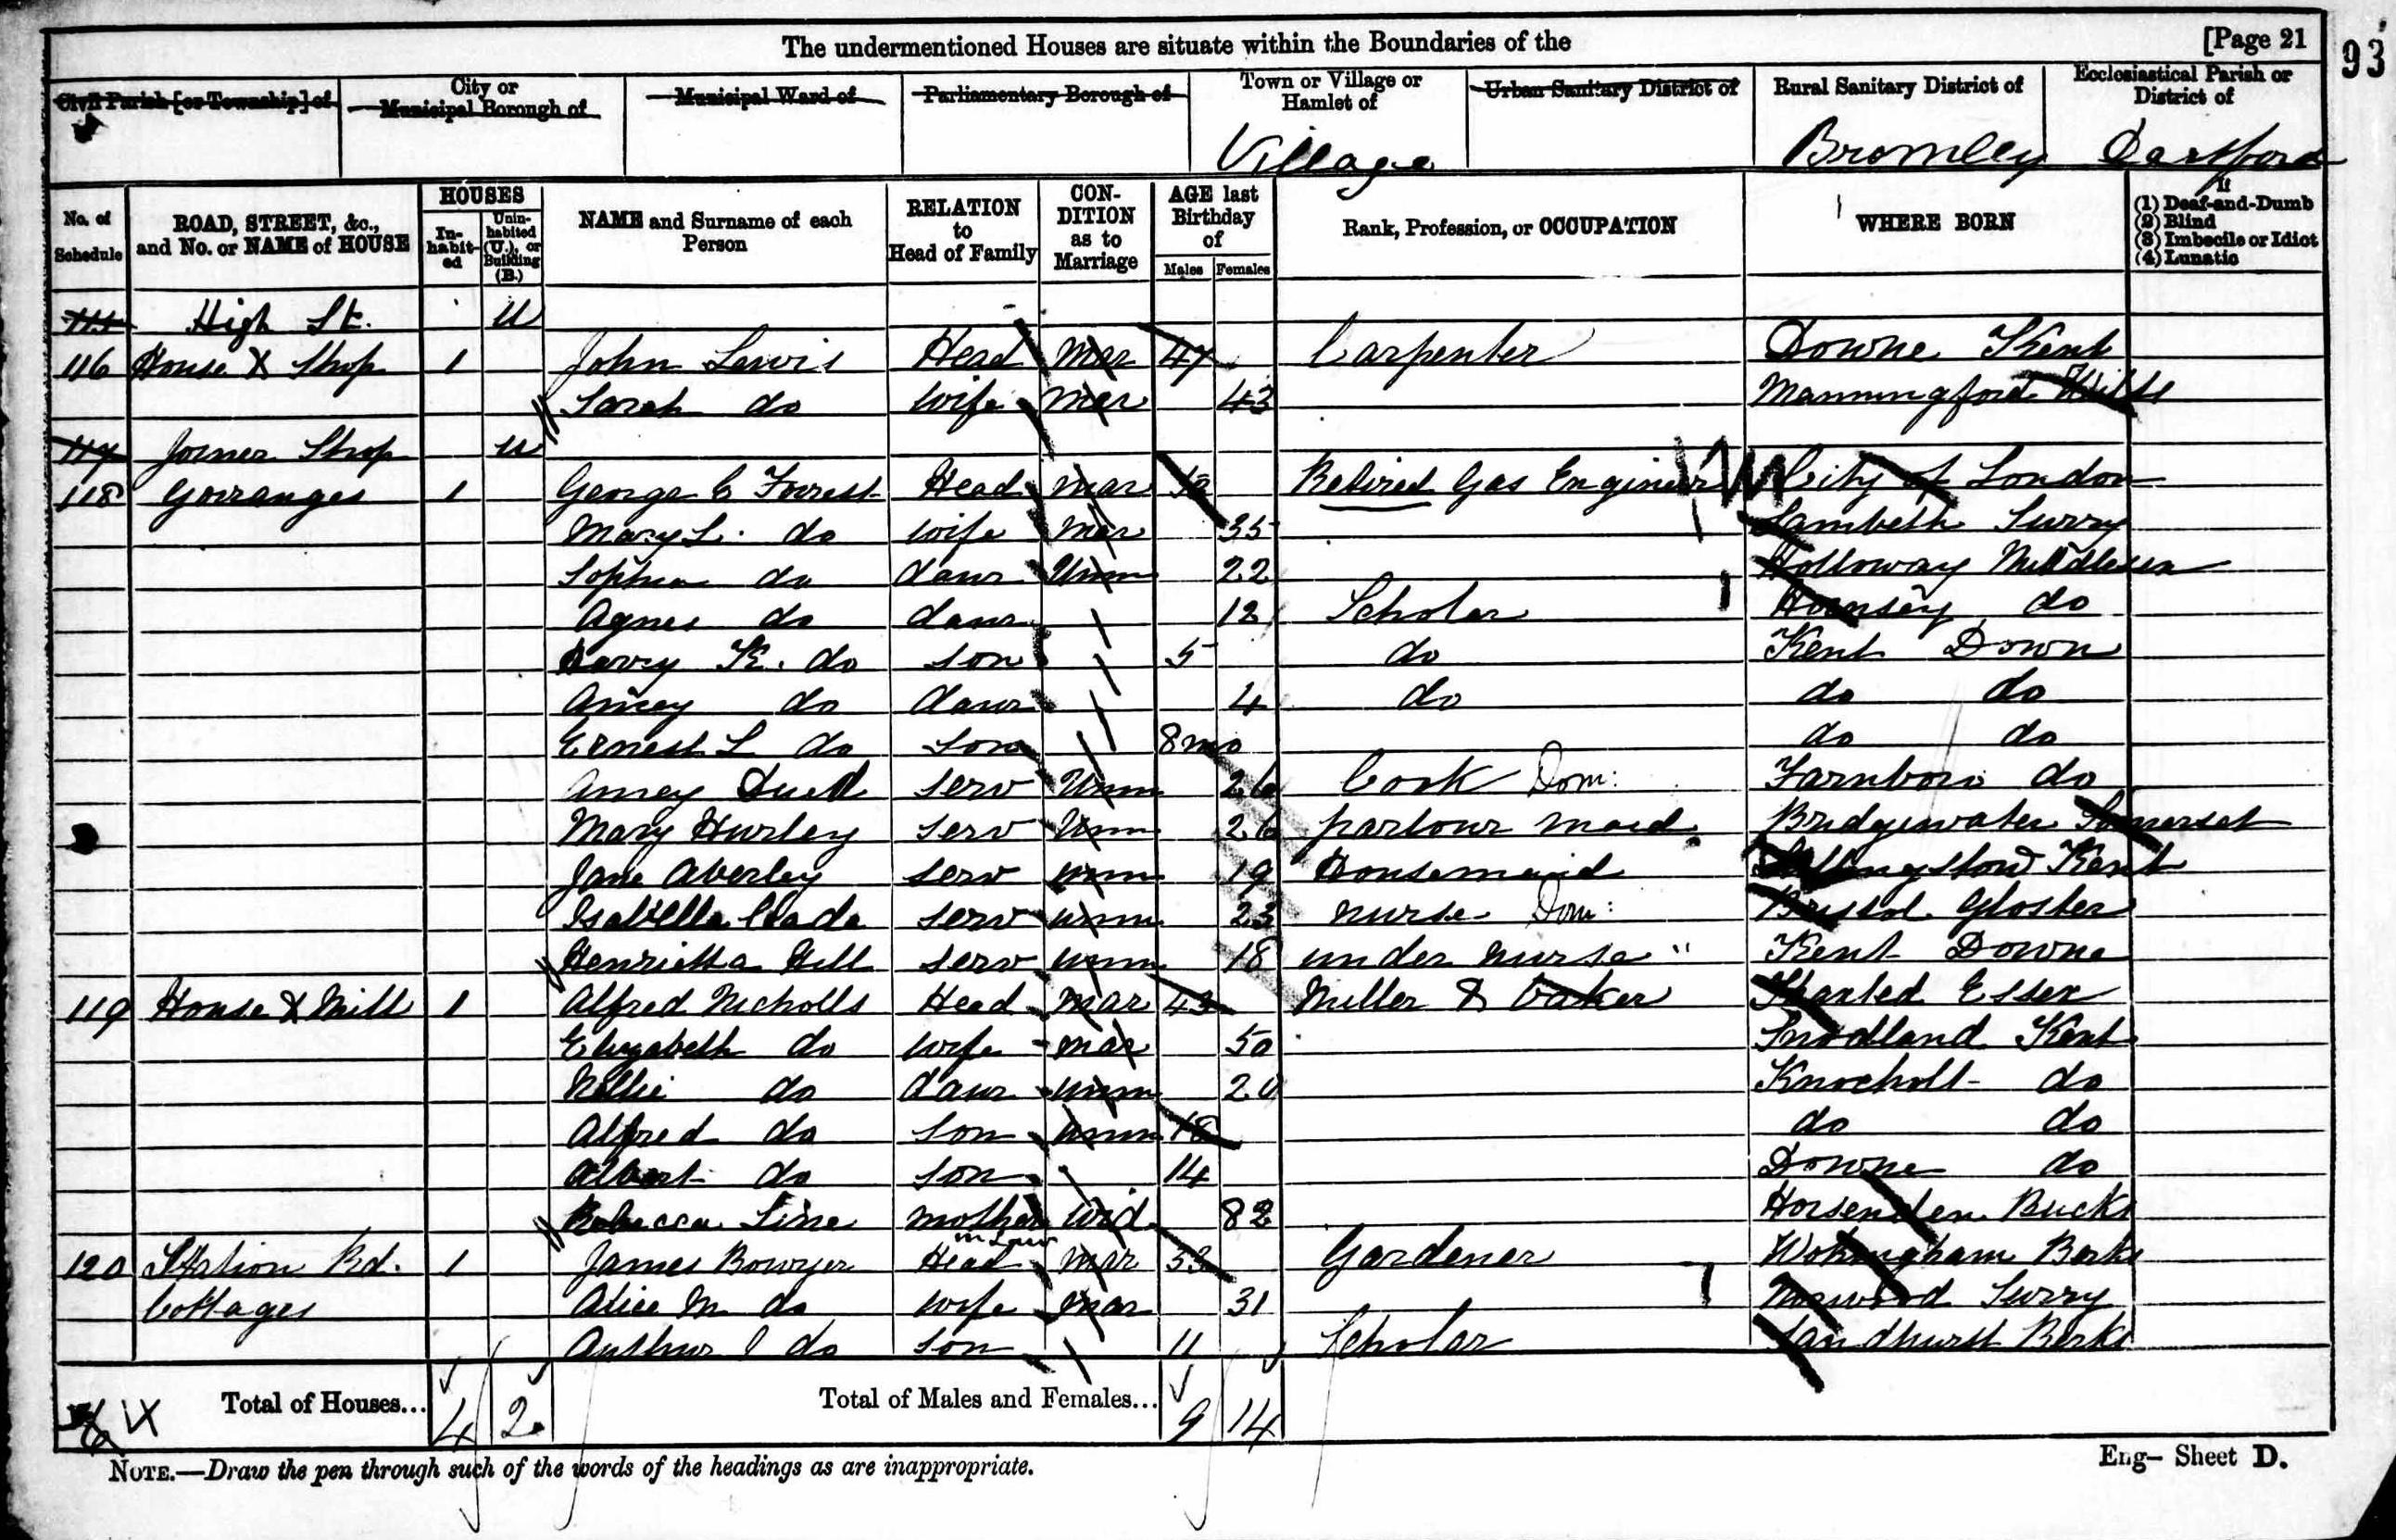 The undermentioned Houses are situate within the Boundaries of the
[Page 21
93
Civil Parish [or Township] of
City or Municipal Borough of
Municipal Ward of
Parliamentary Borough of
Town or Village or Hamlet of
Urban Sanitary District of
Rural Sanitary District of
Ecclesiastical Parish or District of
Village
Bromley
Dartford
No. of Schedule
ROAD, STREET, &c., and No. or NAME of HOUSE
HOUSES
In-habit-ed
Unin-habited (U.), or Building (B.)
NAME and Surname of each Person
RELATION to Head of Family
CON-DITION as to Marriage
AGE last Birthday of
Males
Females
Rank, Profession, or OCCUPATION
WHERE BORN
If
(1) Deaf-and-Dumb
(2) Blind
(3) Imbecile or Idiot
(4) Lunatic
115 High St. U
116 House & Shop 1 John Lewis Head Mar 47 Carpenter Downe Kent
Sarah do wife Mar 43 Manningford Wilts
117 Joiner Shop U
118 Gorranges 1 George C Forrest Head Mar Retired Gas Engineer City of London
Mary L. do wife Mar 35 Lambeth Surry
Sophia do daur Unm 22 Holloway Middlesex
Agnes do daur 12 Scholar Hornsey do
Harry K. do son 5 do Kent Down
Amey do daur 4 do do do
Ernest L do son 8 mo do do
Amey serv Unm 26 Cook Dom: Farnboro do
Mary Hurley serv Unm 26 parlour maid Bridgewater Somerset
Jane Aberley serv unm 19 Housemaid Kent
Isabella serv unm 23 nurse Dom: Bristol Gloster
Henrietta Hill serv unm 18 under nurse " Kent Downe
119 House & Mill 1 Alfred Nicholls Head Mar 43 Miller & baker Essex
Elizabeth do wife mar 50 Snodland Kent
Nellie do daur unm 20 Knockolt do
Alfred do son unm 18 do do
Albert do son 14 Downe do
Rebecca Line mother in Law wid 82 Horsenden Bucks
120 Station Rd. 1 James Bowyer Head mar 53 Gardener Wokingham Berks
Cottages Alice M do wife mar 31 Norwood Surry
Arthur J do son 11 Scholar Sandhurst Berks
Total of Houses... 4 2
Total of Males and Females... 9 14
NOTE.—Draw the pen through such of the words of the headings as are inappropriate.
Eng— Sheet D.